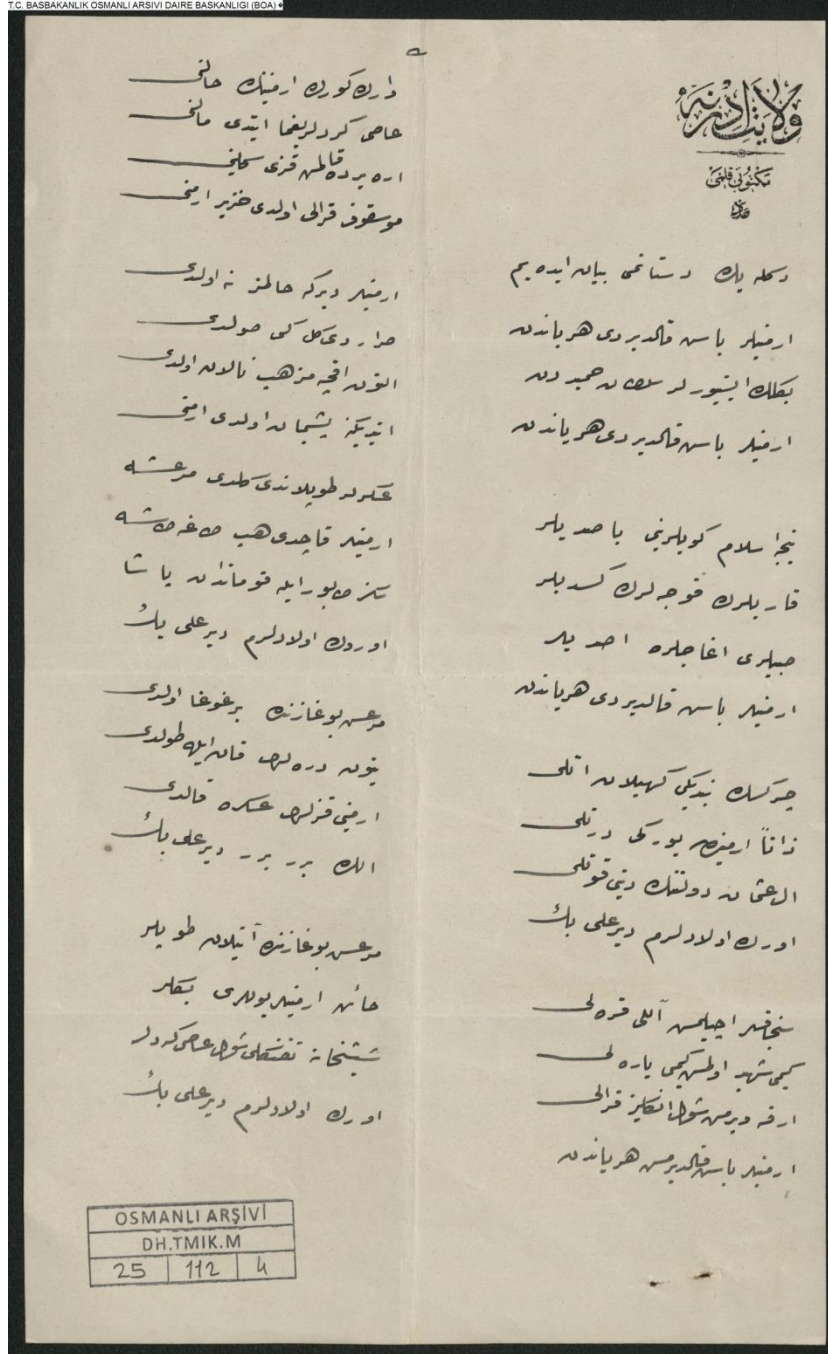 T.C. BASBAKANLIK OSMANLI ARSIVI DAIRE BASKANLIGI (BOA)
ولايت ادرنه
مكتوبى قلمى
بك دستاننى بيان ايده يم
ارمنيلر باش قالديردى هر ياندن
بكلك ايستيورلر سلطان حميددن
ارمنيلر باش قالديردى هر ياندن
نيجه اسلام كويلرينى باصديلر
قاريلرك قوجه لرك كسديلر
اغاجلره اصديلر
ارمنيلر باش قالديردى هر ياندن
چركسك بنديكى كهيلان اتلى
ذاتاً ارمنينك يوركى دردلى
ال عثمان دولتنك دينى قوتلى
اورك اولادلرم دير على بك
سنجاقلر اچيلمش آللى قره لى
كيمى شهيد اولمش كيمى ياره لى
ارقه ويرمش شول انكليز قرالى
ارمنيلر باش قالديرمش هر ياندن
كورك ارمنينك حالنى
عاصى كردلر يغما ايتدى مالنى
موسقوف قرالى اولدى خنزير ارمنى
ارمنيلر ديركه حالمز نه اولدى
كل كبى صولدى
التون اقچه مزهب تالان اولدى
ايتديكنه پشيمان اولدى ارمنى
عسكرلر طوپلاندى كلدى مرعشه
ارمنيلر قاچدى هب طاغه طاشه
سكز طابور ايله قوماندان پاشا
اورك اولادلرم دير على بك
مرعش بوغازنده بر غوغا اولدى
بتون دره لر قان ايله طولدى
ارمنى قزلرى عسكره قالدى
الك برر برر دير على بك
مرعش بوغازنده آتيلان طوپلر
خائن ارمنيلر يوللرى بكلر
ششخانه تفنكلى شول عاصى كردلر
اورك اولادلرم دير على بك
OSMANLI ARŞİVİ
DH.TMIK.M
25 112 4